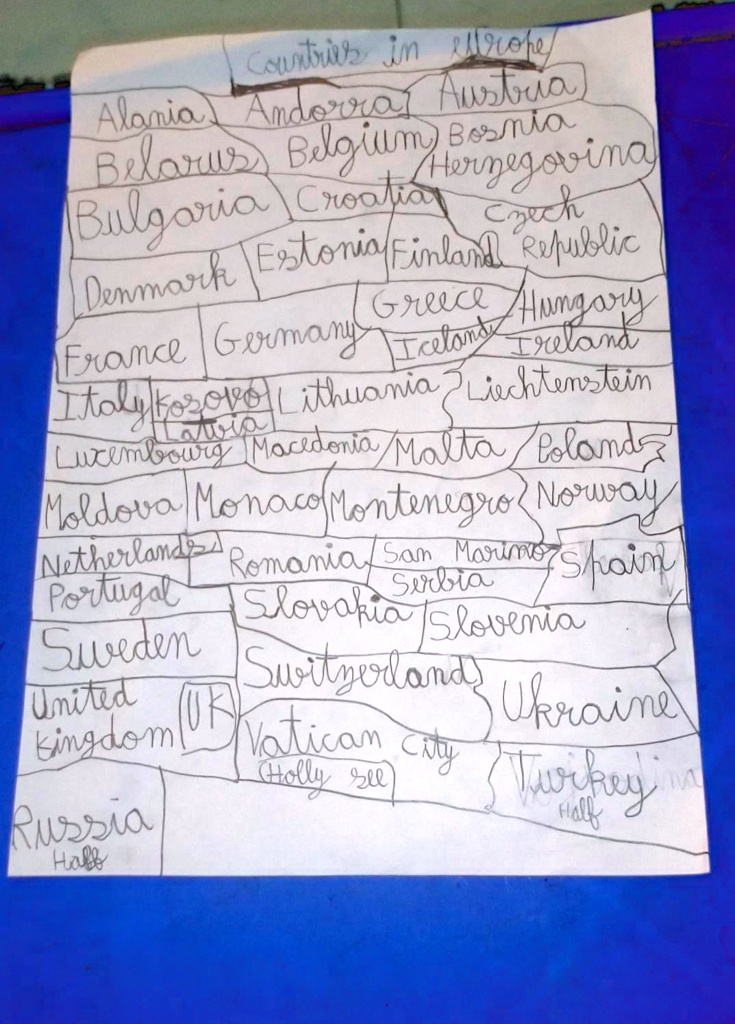 Countries in europe
Alania Andorra Austria
Belarus Belgium Bosnia
Herzegovina
Bulgaria Croatia Czech
Republic
Denmark Estonia Finland
France Germany Greece Hungary
Iceland Ireland
Italy Kosovo Lithuania Liechtenstein
Latvia
Luxembourg Macedonia Malta Poland
Moldova Monaco Montenegro Norway
Netherlands Romania San Marino Spain
Serbia
Portugal Slovakia Slovenia
Sweden Switzerland Ukraine
United
kingdom UK
Vatican City
(Holly see Turkey
Half
Russia
Half